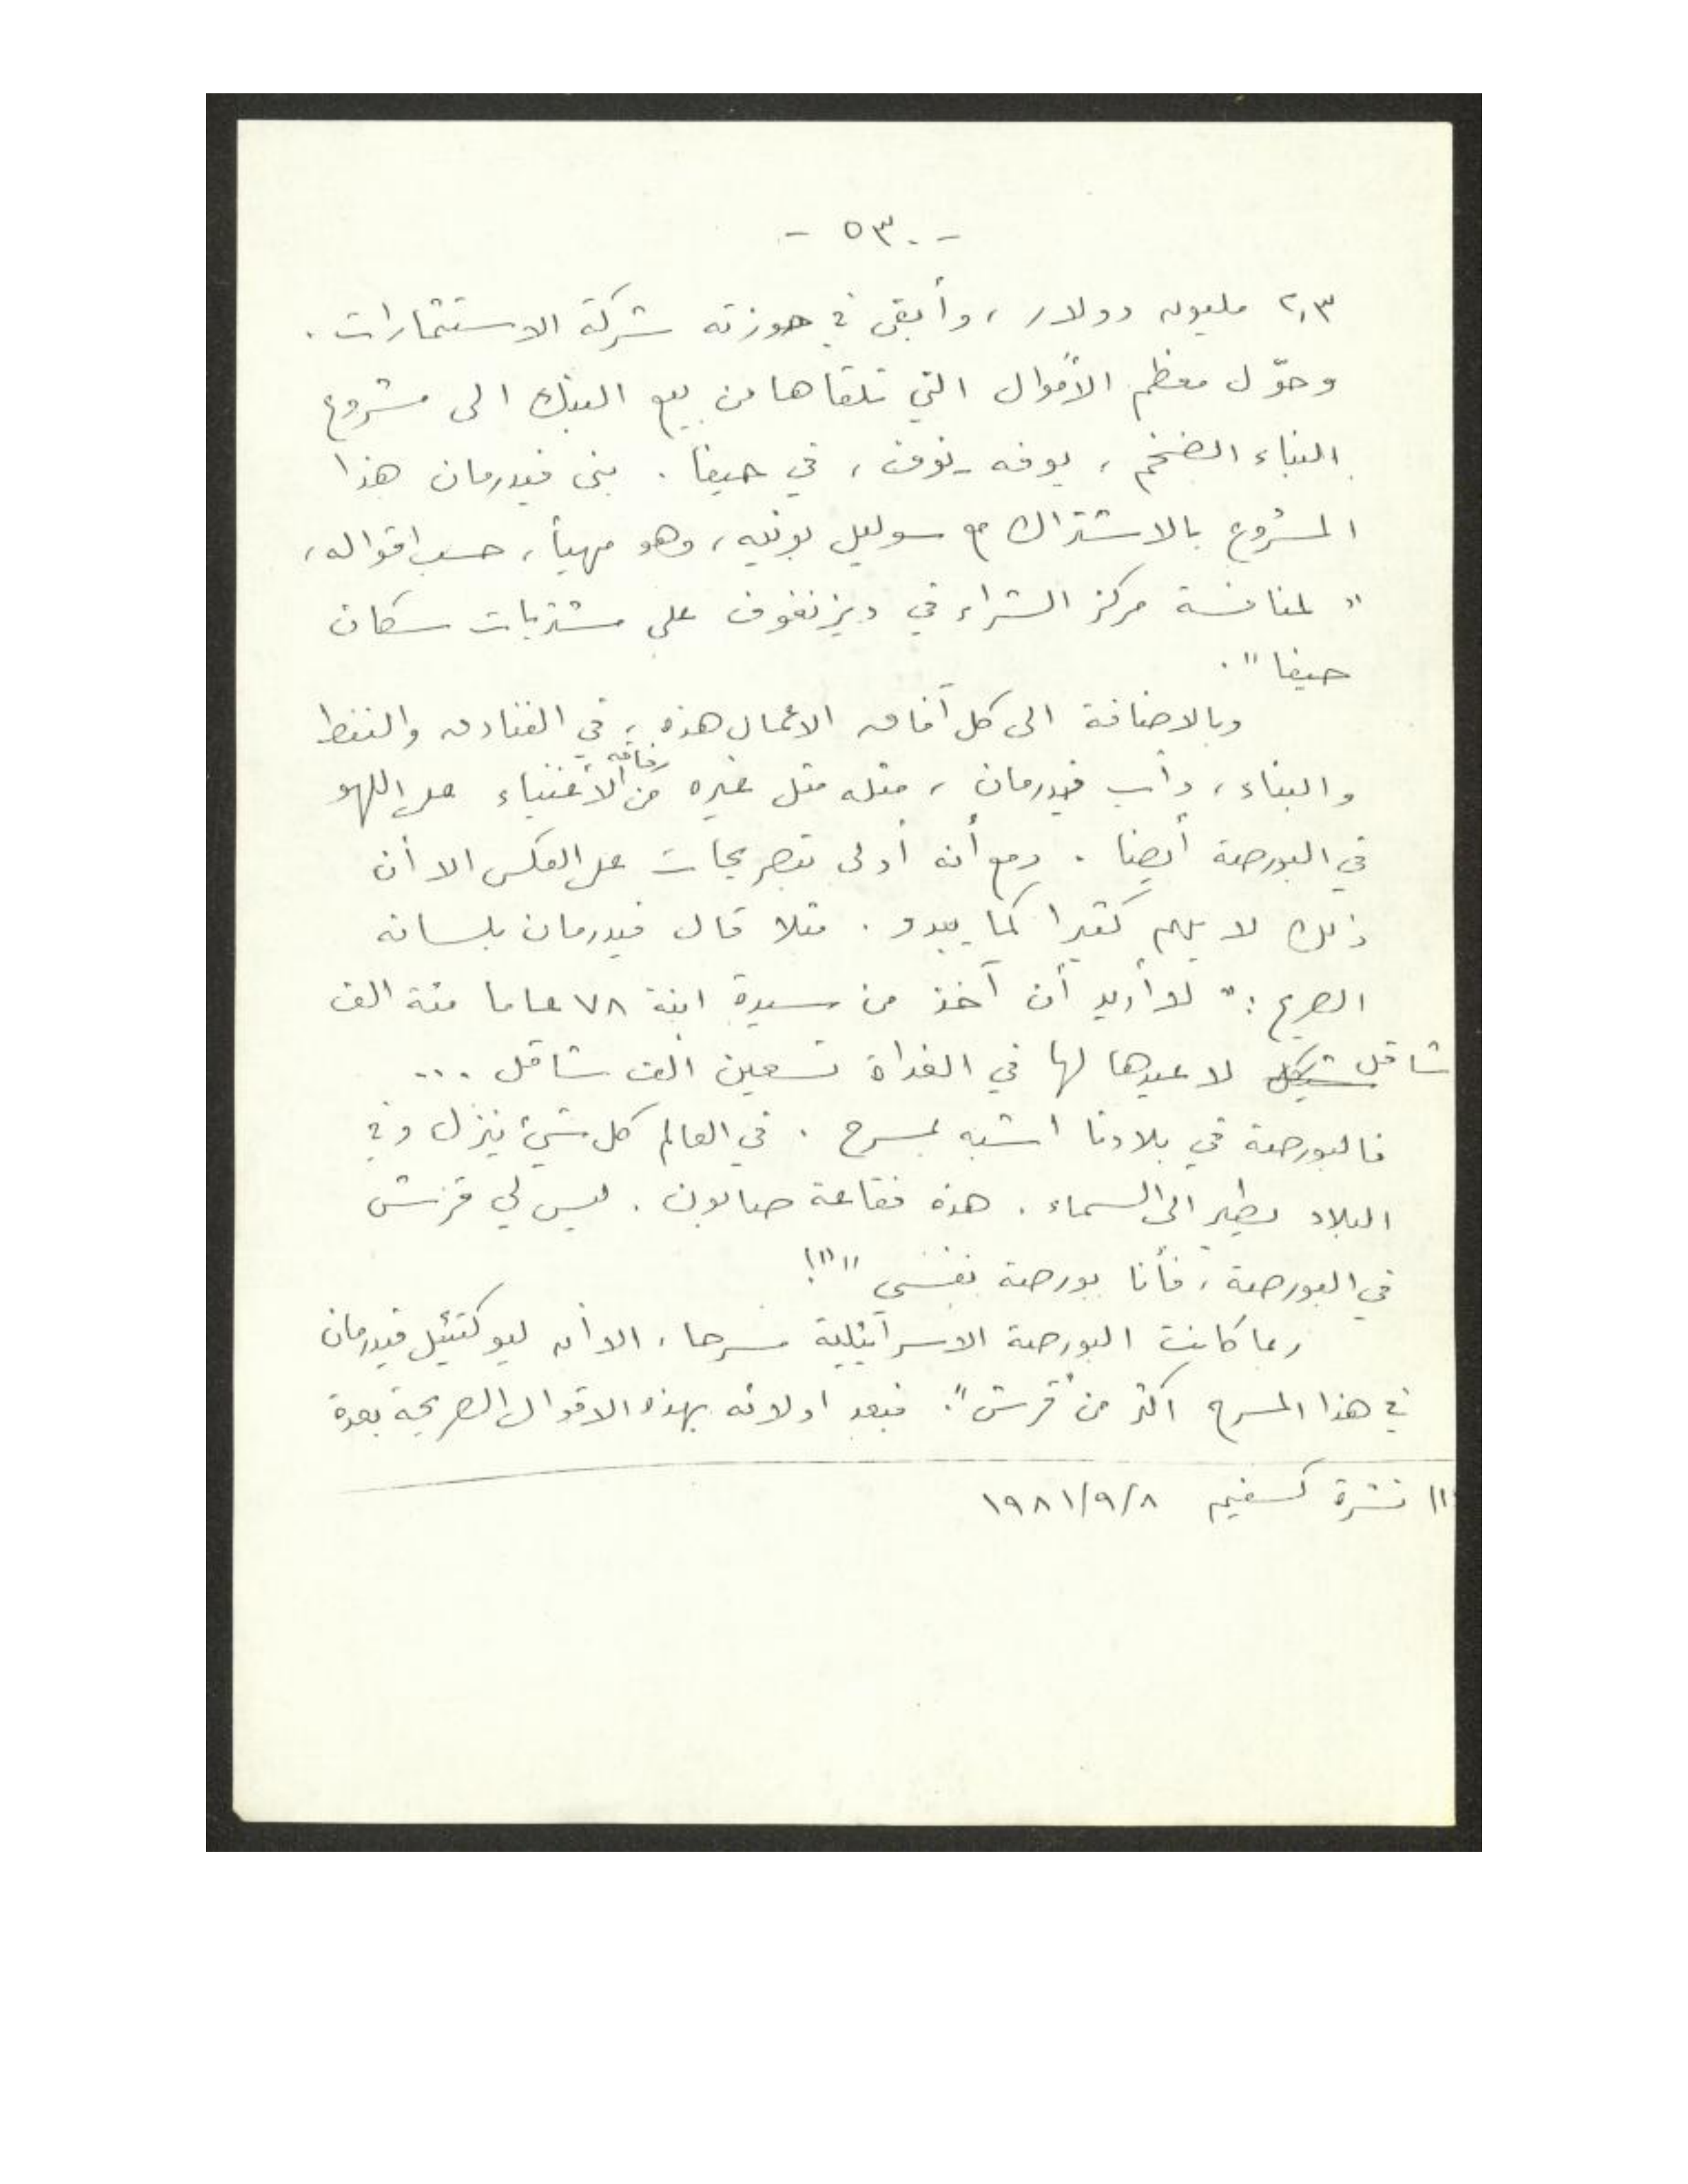 - ٥٣٠ -
٢,٣ مليون دولار ، وأبقى في حوزته شركة الاستثمارات .
وحوّل معظم الأموال التي تلقاها من بيع البنك الى مشروع
البناء الضخم ، يوفه - نوف ، في حيفا . بنى فيدرمان هذا
المشروع بالاشتراك مع سوليل بونيه ، وهو مهيأ ، حسب اقواله ،
" لمنافسة مركز الشراء في ديزنغوف على مشتريات سكان
حيفا " .
وبالاضافة الى كل آفاق الاعمال هذه ، في الفنادق والنفط
والبناء ، دأب فيدرمان ، مثله مثل غيره من رفاقه الأغنياء على اللهو
في البورصة أيضا . ومع أنه أدلى بتصريحات على العكس الا أن
ذلك لا يهم كثيرا كما يبدو . مثلا قال فيدرمان بلسانه
الصريح : " لا أريد أن آخذ من سيدة ابنة ٧٨ عاما مئة الف
شاقل لاعيدها لها في الغداة تسعين الف شاقل ...
فالبورصة في بلادنا اشبه بمسرح . في العالم كل شيء ينزل وفي
البلاد يطير الى السماء . هذه فقاعة صابون . ليس لي قرش
في البورصة ، فأنا بورصة بنفسي " (١١)!
ربما كانت البورصة الاسرائيلية مسرحا ، الا أن ليوكتيئيل فيدرمان
في هذا المسرح اكثر من "قرش" . فبعد ادلائه بهذه الاقوال الصريحة بعدة
١١ نشرة كسفيم ١٩٨١/٩/٨